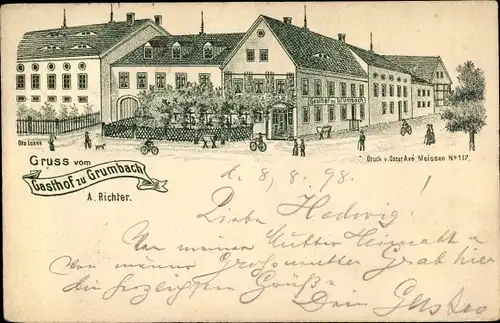 Gasthof zu Grumbach
Otto Lohse
Druck v. Oscar Avé, Meissen No 117.
Gruss vom
Gasthof zu Grumbach
A. Richter.
d. 8./8. 98.
Liebe Hedwig!
Von meiner Mutter Heimath &
von meiner Grossmutter Grab hier
die herzlichsten Grüße
Dein Gustav